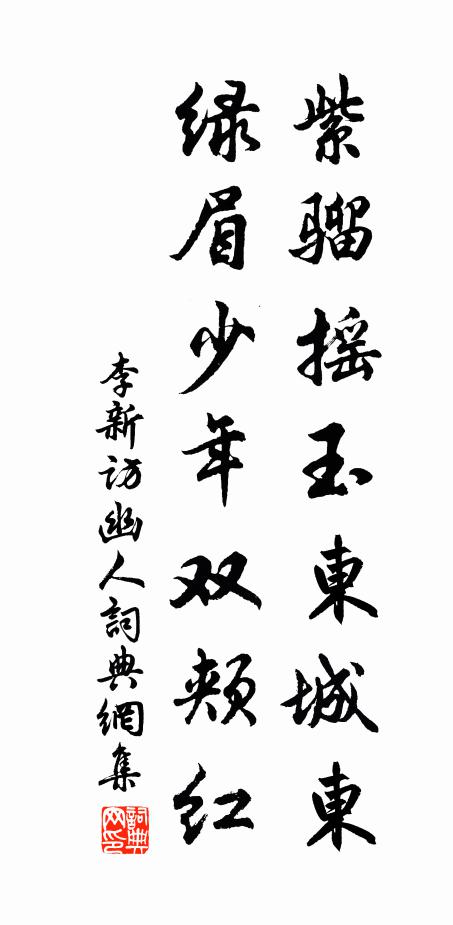 紫骝摇玉東城東
绿眉少年双颊红
李新访幽人詞典網集
詞典网印